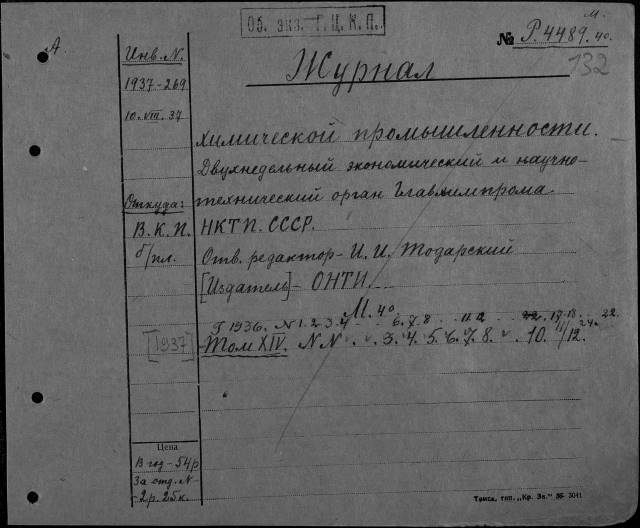 Об. экз. Г.Ц.К.П.
м.
№ Р.4489. 40.
132
А
Журнал
Инв. N.
1937-269
10. VIII. 37
химической промышленности.
Двухнедельный экономический и научно-
технический орган Главхимпрома
Откуда:
В.К.П.
б/пл.
НКТП. СССР.
Отв. редактор - И. И. Тодарский
[Издатель] - ОНТИ.
М. 40
1936. N 1. 2. 3. 4 6. 7. 8 22.
[1937]
Том XIV. NN 3. 4. 5. 6. 7. 8. 10. 11/12.
Цена
В год - 54р
За отд. N
- 2 р. 25 к.
Томск, тип. „Кр. Зн." 36- 3041